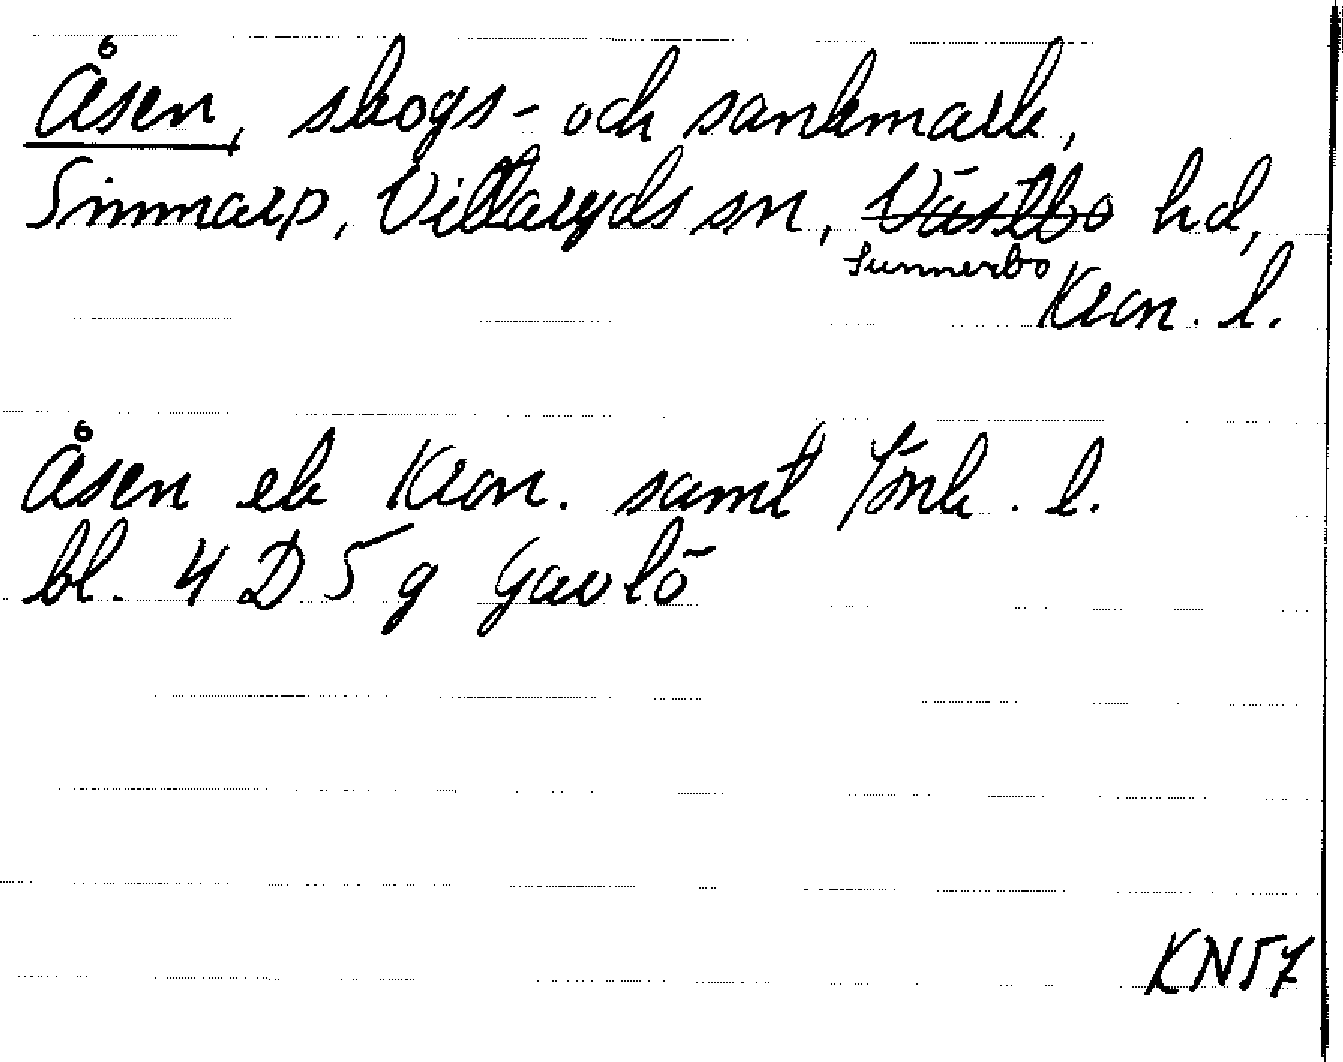 Åsen, skogs- och sankmark,
Simmarp, Vittaryds sn, Västbo hd,
Sunnerbo
Kron. l.
Åsen ek Kron. samt Jönk. l.
bl. 4 D 5 g Gavlö
KN57